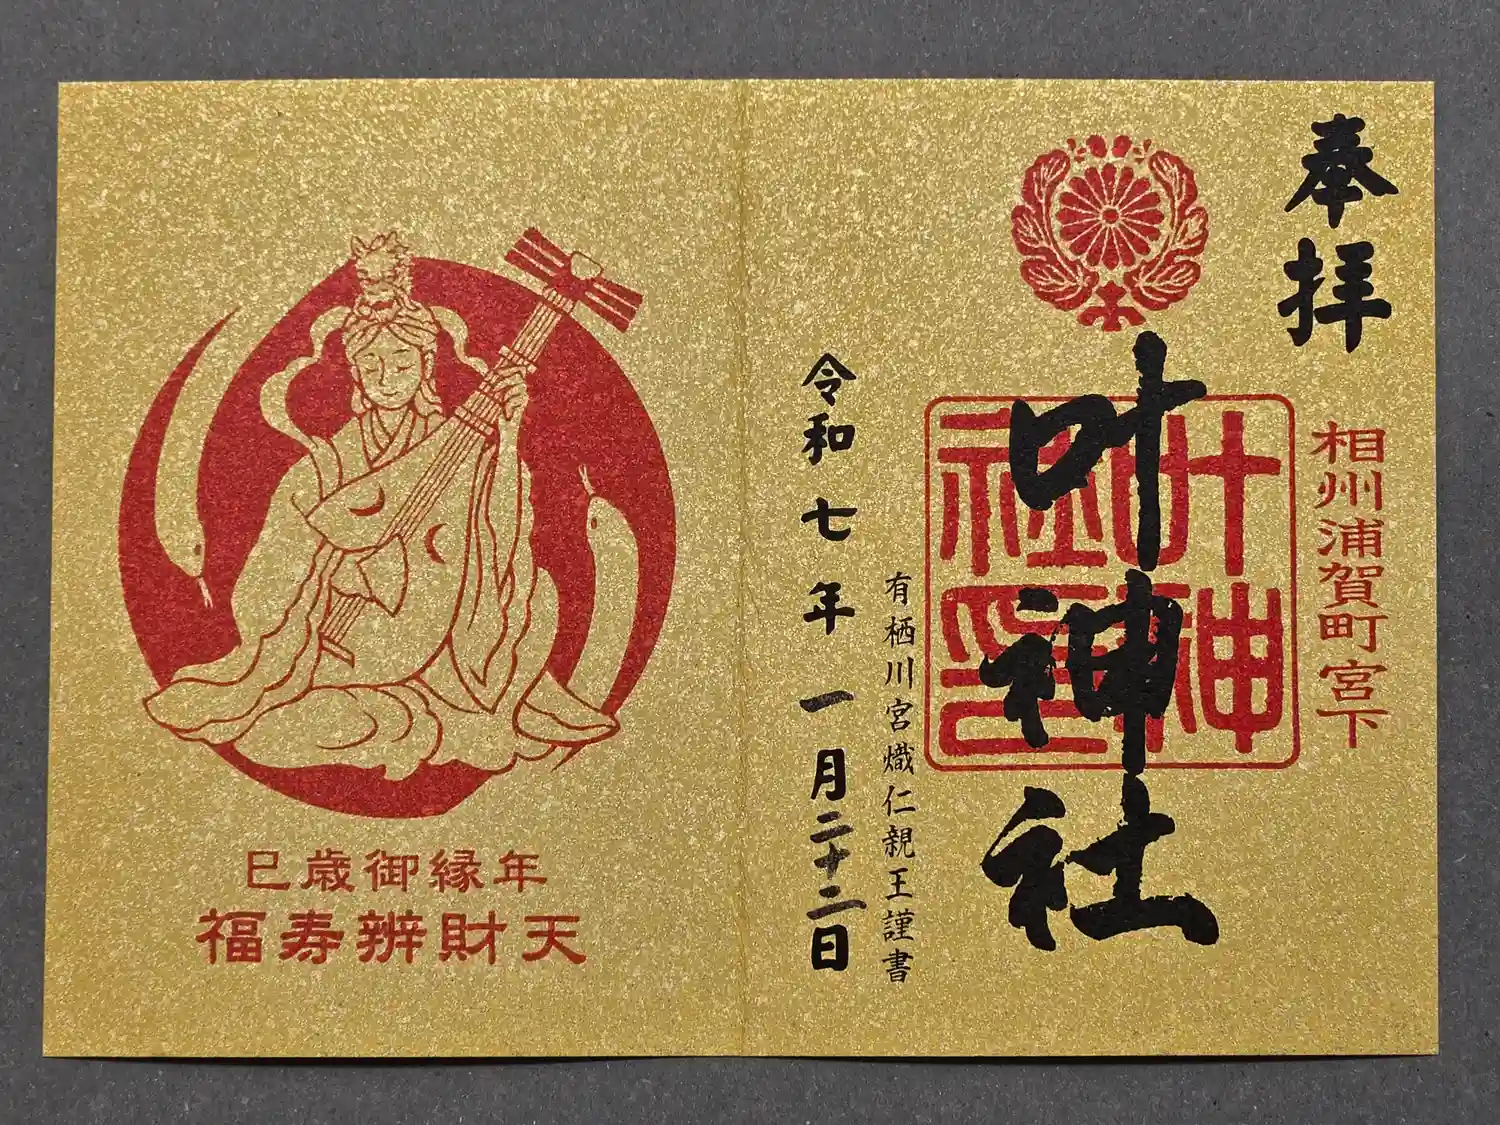 奉拝
相州浦賀町宮下
叶神社
叶神社印
有栖川宮熾仁親王謹書
令和七年一月二十二日
巳歳御縁年
福寿辨財天